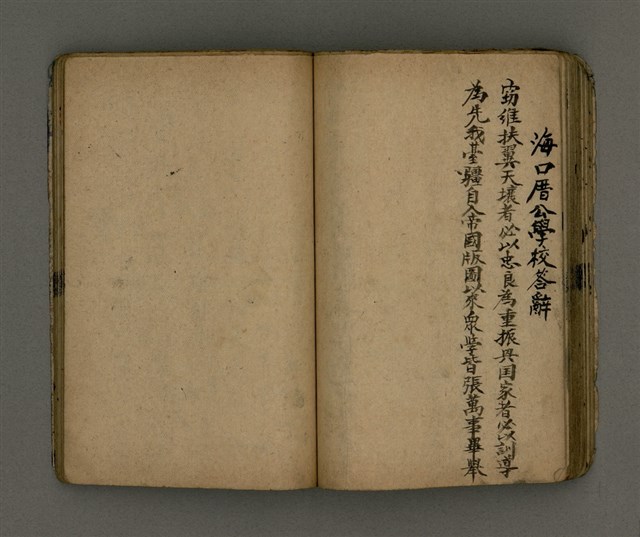 海口厝公學校答辭
窃維扶翼天壤者必以忠良為重振興国家者必以訓導
為先我臺疆自入帝國版圖以來衆學皆張萬事畢舉